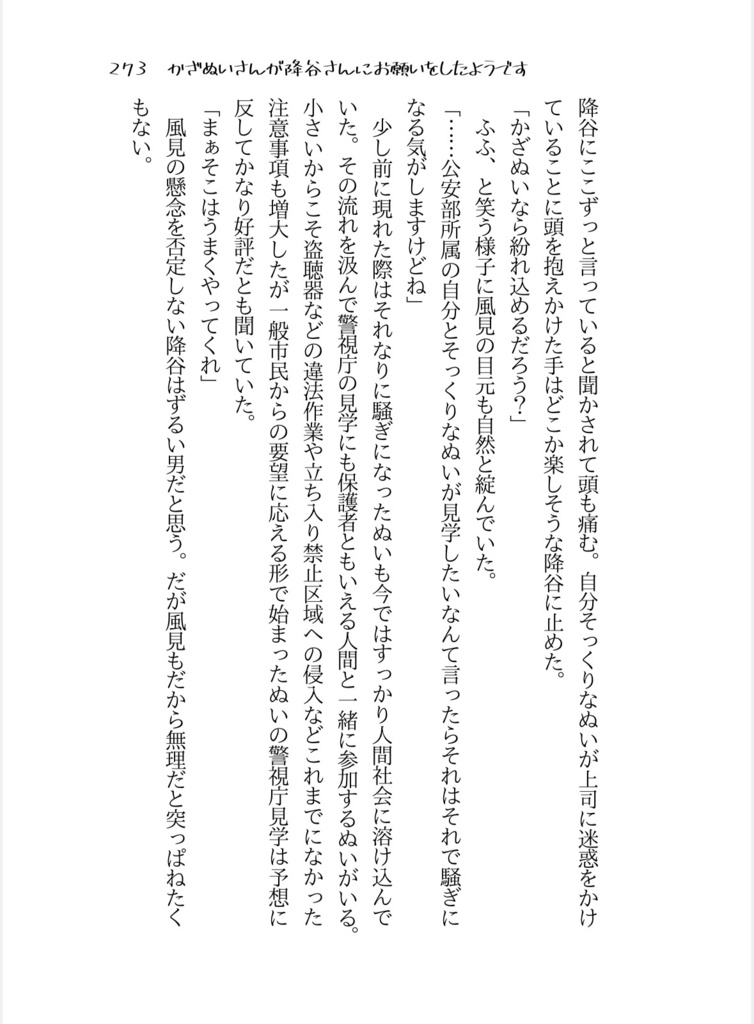 273 かざぬいさんが降谷さんにお願いをしたようです
降谷にここずっと言っていると聞かされて頭も痛む。自分そっくりなぬいが上司に迷惑をかけ
ていることに頭を抱えかけた手はどこか楽しそうな降谷に止めた。
「かざぬいなら紛れ込めるだろう？」
ふふ、と笑う様子に風見の目元も自然と綻んでいた。
「……公安部所属の自分とそっくりなぬいが見学したいなんて言ったらそれはそれで騒ぎに
なる気がしますけどね」
少し前に現れた際はそれなりに騒ぎになったぬいも今ではすっかり人間社会に溶け込んで
いた。その流れを汲んで警視庁の見学にも保護者ともいえる人間と一緒に参加するぬいがいる。
小さいからこそ盗聴器などの違法作業や立ち入り禁止区域への侵入などこれまでになかった
注意事項も増大したが一般市民からの要望に応える形で始まったぬいの警視庁見学は予想に
反してかなり好評だとも聞いていた。
「まぁそこはうまくやってくれ」
風見の懸念を否定しない降谷はずるい男だと思う。だが風見もだから無理だと突っぱねたく
もない。